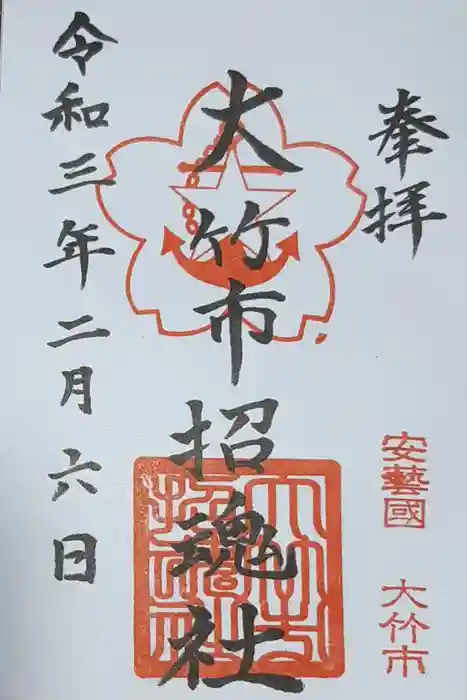 奉拝
安藝國 大竹市
大竹市招魂社
令和三年二月六日